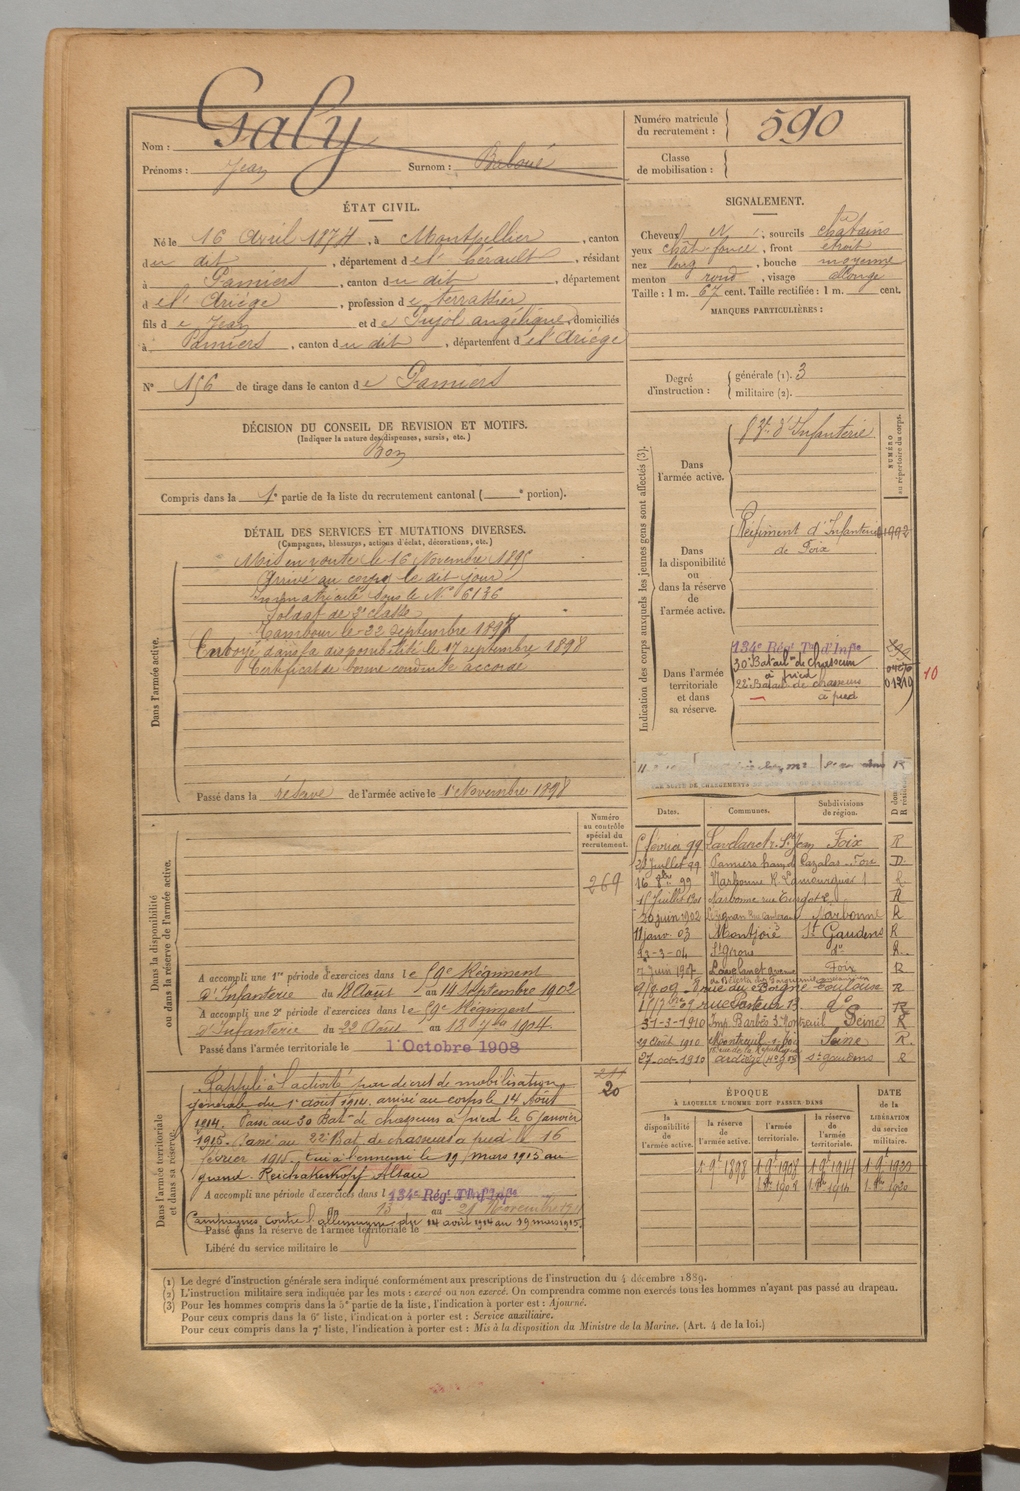 Nom : Galy
Prénoms : Jean Surnom :
Numéro matricule du recrutement : 590
Classe de mobilisation :
ÉTAT CIVIL.
Né le 16 Avril 1874, à Montpellier, canton
du dit, département de l'Hérault, résidant
à Pamiers, canton du dit, département
d e l'Ariége, profession de terrassier
fils de Jean et de Pujol angélique, domiciliés
à Pamiers, canton du dit, département de l'Ariége
N° 156 de tirage dans le canton de Pamiers
DÉCISION DU CONSEIL DE REVISION ET MOTIFS.
(Indiquer la nature des dispenses, sursis, etc.)
Bon
Compris dans la 1e partie de la liste du recrutement cantonal ( e portion).
SIGNALEMENT.
Cheveux N, sourcils chatains
yeux chât foncé, front étroit
nez long, bouche moyenne
menton rond, visage allongé
Taille : 1 m. 67 cent. Taille rectifiée : 1 m. cent.
MARQUES PARTICULIÈRES :
Degré d'instruction : générale (1). 3
militaire (2).
DÉTAIL DES SERVICES ET MUTATIONS DIVERSES.
(Campagnes, blessures, actions d'éclat, décorations, etc.)
Dans l'armée active.
Mis en route le 16 Novembre 1895
Arrivé au corps le dit jour
Immatriculé sous le N° 6136
Soldat de 2e classe
Tambour le 22 Septembre 1897
Envoyé dans la disponibilité le 17 septembre 1898
Certificat de bonne conduite accordé
Passé dans la réserve de l'armée active le 1er Novembre 1898
Indication des corps auxquels les jeunes gens sont affectés (3).
NUMÉRO au répertoire du corps.
Dans l'armée active.
d'Infanterie
Dans la disponibilité ou dans la réserve de l'armée active.
Régiment d'Infanterie
de Foix
Dans l'armée territoriale et dans sa réserve.
134e Régt Tal d'Infie
30e Bataillon de chasseurs
à pied
22e Batail de chasseurs
à pied
01219
10
Dates. Communes. Subdivisions de région.
février 99 Foix R
juillet 99 Pamiers D
16 8bre 99 Narbonne
Narbonne rue R
20 juin 1902 Narbonne R
11 janv. 03 Montjoie St Gaudens R
22-3-04 St Girons do R
7 juin 1907 Lavelanet Foix R
Toulouse R
rue Pasteur do R
31-3-1910 Imp. Barbès Montreuil Seine R
29 août 1910 Montreuil s. bois Seine R.
27-oct-1910 rue de la République St gaudens R
Dans la disponibilité ou dans la réserve de l'armée active.
Numéro au contrôle spécial du recrutement.
269
A accompli une 1re période d'exercices dans le 59e Régiment
d'Infanterie du 18 Août au 14 Septembre 1902
A accompli une 2e période d'exercices dans le 59e Régiment
d'Infanterie du 22 Août au 1904.
Passé dans l'armée territoriale le 1 Octobre 1908
Dans l'armée territoriale et dans sa réserve.
20
Rappelé à l'activité par décret de mobilisation
générale du 1er août 1914. arrivé au corps le 14 Août
1914. Passé au 30 Bat. de chasseurs à pied le 6 janvier
1915. Passé au 22e Bat. de chasseurs à pied le 16
février 1915. Tué à l'ennemi le 19 mars 1915 au
grand Reichakerkopf Alsace
A accompli une période d'exercices dans l 134e Régt Tal d'Infie
du 13 au 21 Novembre
Campagnes contre l'allemagne du 14 août 1914 au 19 mars 1915.
Passé dans la réserve de l'armée territoriale le
Libéré du service militaire le
ÉPOQUE
À LAQUELLE L'HOMME DOIT PASSER DANS
DATE de la LIBÉRATION du service militaire.
la disponibilité de l'armée active.
la réserve de l'armée active.
l'armée territoriale.
la réserve de l'armée territoriale.
1 9bre 1898 1 9bre 1908 1 9bre 1914 1 9bre 1920
1 8bre 1908 1 8bre 1914 1 8bre 1920
(1) Le degré d'instruction générale sera indiqué conformément aux prescriptions de l'instruction du 4 décembre 1889.
(2) L'instruction militaire sera indiquée par les mots : exercé ou non exercé. On comprendra comme non exercés tous les hommes n'ayant pas passé au drapeau.
(3) Pour les hommes compris dans la 5e partie de la liste, l'indication à porter est : Ajourné.
Pour ceux compris dans la 6e liste, l'indication à porter est : Service auxiliaire.
Pour ceux compris dans la 7e liste, l'indication à porter est : Mis à la disposition du Ministre de la Marine. (Art. 4 de la loi.)